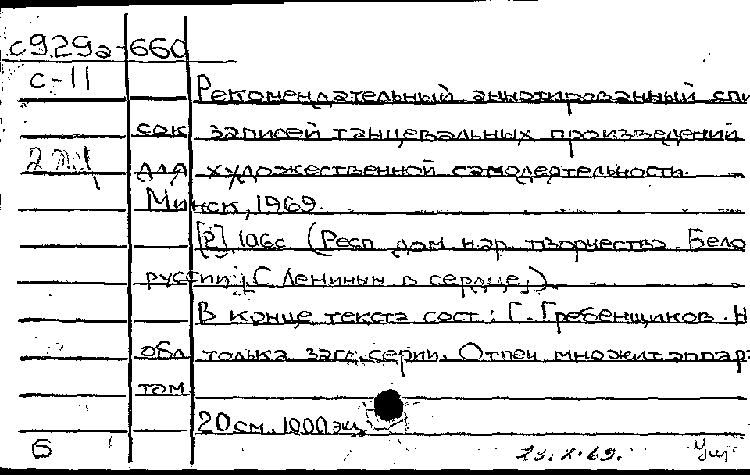 с929а-660
с-11
Рекомендательный аннотированный спи
сок записей танцевальных произведений
для художественной самодеятельности.
Минск, 1969.
[Р], 106с (Респ дом нар творчества Бело
руссии; С Лениным в сердце,)
В конце текста сост: Г. Гребенщиков. Н
обл только загл. серии. Отпеч множит. аппара
том
20см. 1000 экз
Б